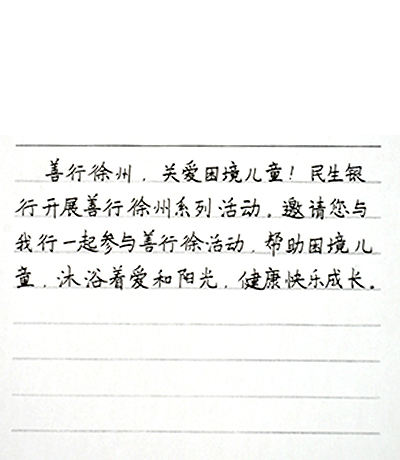 善行徐州，关爱困境儿童！民生银
行开展善行徐州系列活动。邀请您与
我行一起参与善行徐活动，帮助困境儿
童，沐浴着爱和阳光，健康快乐成长。